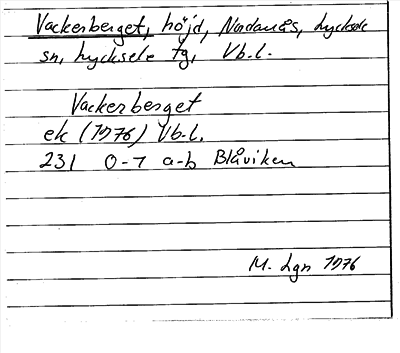 Vackerberget, höjd, Nordanås, Lycksele
sn, Lycksele tg, Vb.l.
Vackerberget
ek (1976) Vb.l.
231 0-1 a-b Blåviken
M. Lgn 1976